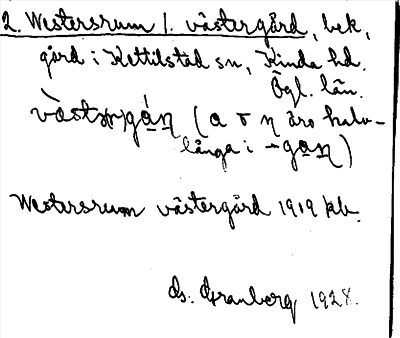 2. Westersrum l. västergård, bek,
gård i Kettilstad sn, Kinda hd.
Ögl. län.
(a o n äro halv-
långa i -gan)
Westersrum västergård 1919 kb.
Granberg 1928.